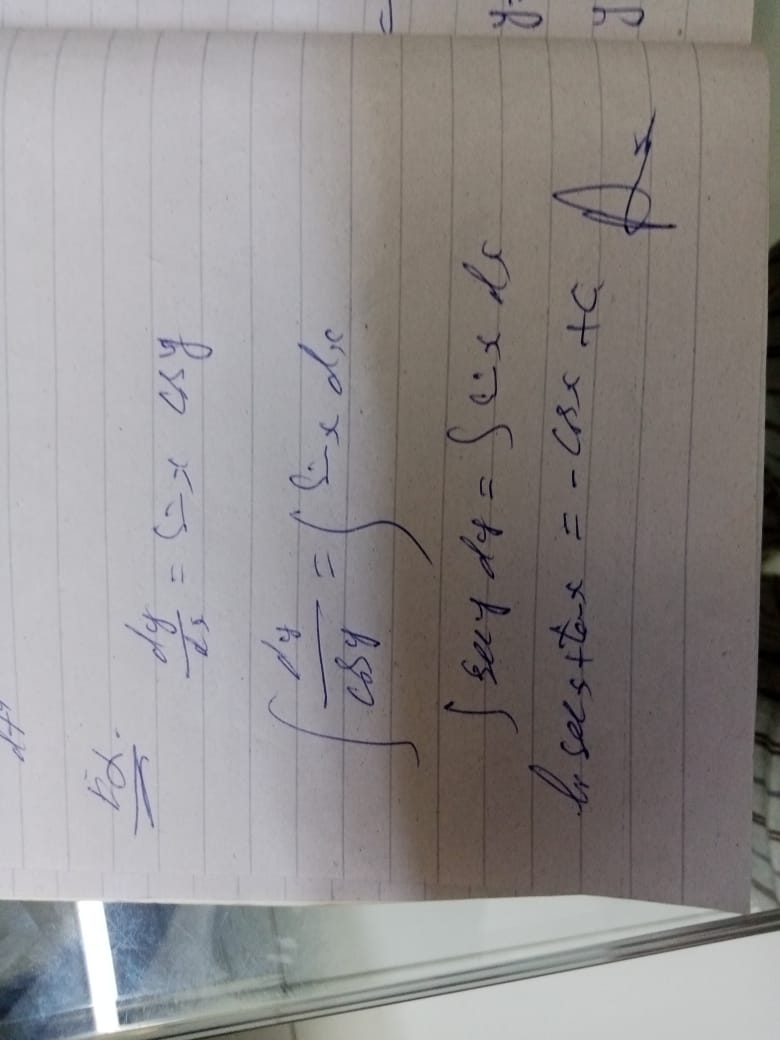 Ex.
dy/dx = Sin x cos y
∫ dy/cos y = ∫ Sin x dx
∫ sec y dy = ∫ Sin x dx
ln sec x + tan x = - cos x + C